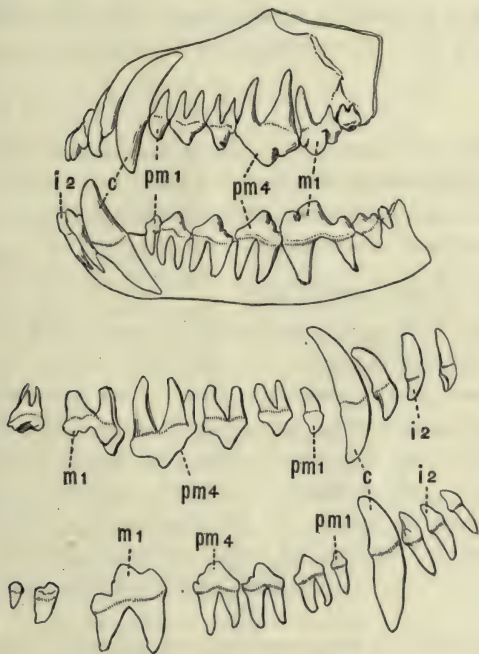 i2 c pm1 pm4 m1
m1 pm4 pm1 c i2
m1 pm4 pm1 i2